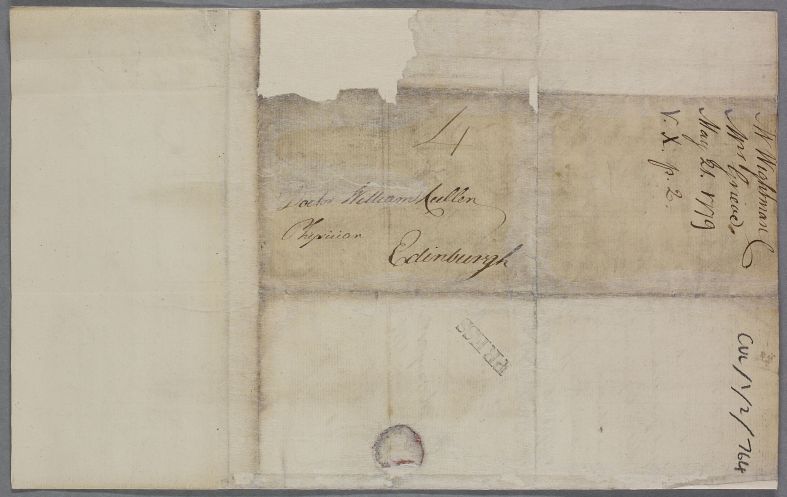 4
Doctor William Cullen
Physician
Edinburgh
Mr Wightman C
Mrs Grieve's
May 21. 1779
V. X. p. 2.
CUL/1/2/764